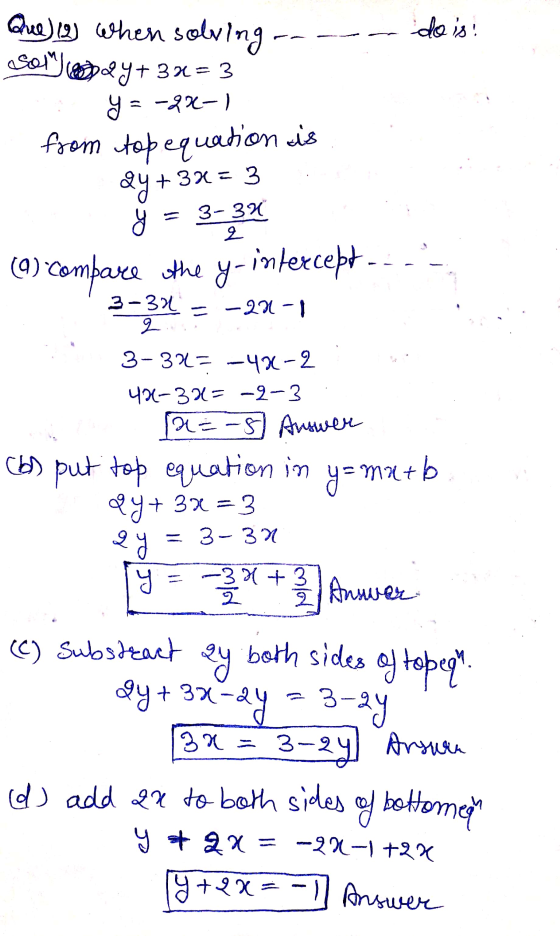 Que)(2) When solving -- - - - - do is:
Solⁿ) 2y + 3x = 3
y = -2x-1
from top equation is
2y + 3x = 3
y = 3-3x/2
(a) compare the y-intercept - - - -
3-3x/2 = -2x-1
3-3x = -4x-2
4x-3x = -2-3
x = -5 Answer
(b) put top equation in y=mx+b
2y + 3x = 3
2y = 3-3x
y = -3/2 x + 3/2 Answer
(c) Substract 2y both sides of top eqⁿ.
2y + 3x - 2y = 3-2y
3x = 3-2y Answer
(d) add 2x to both sides of bottom eqⁿ
y + 2x = -2x-1+2x
y+2x = -1 Answer